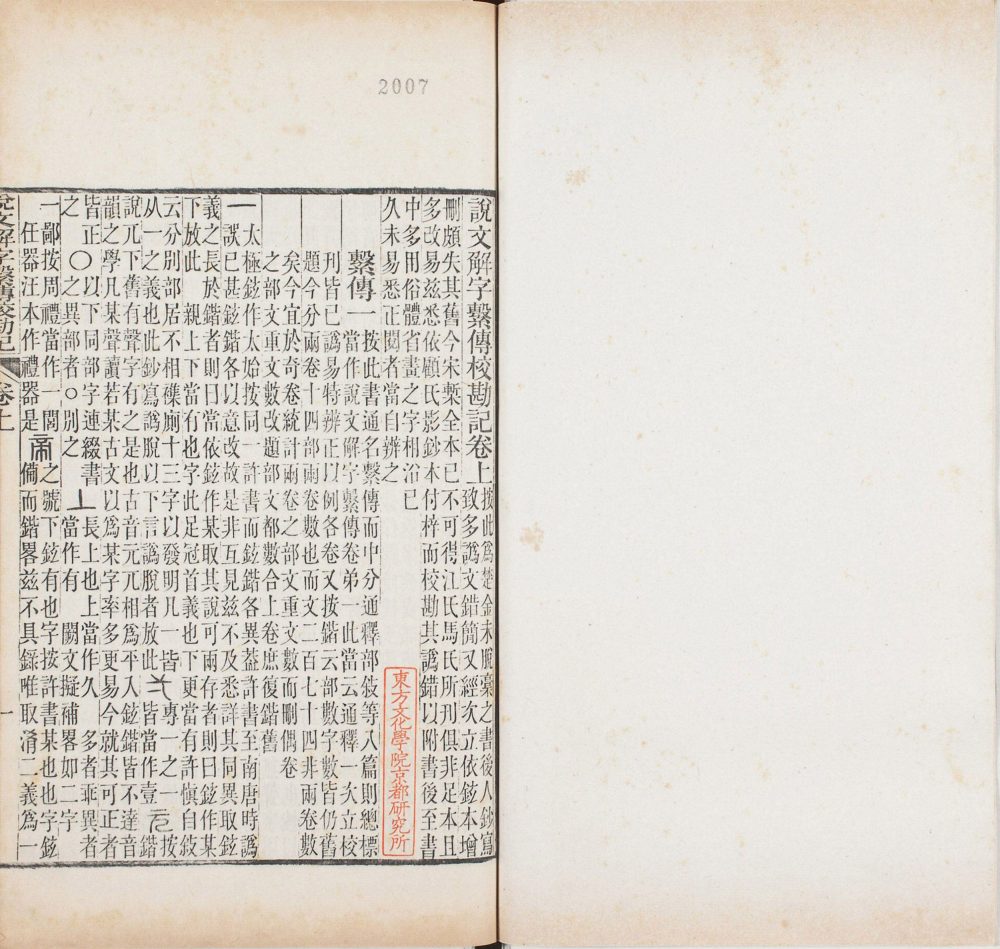 2007
說文解字繫傳校勘記卷上
按此爲楚金未脫稾之書後人鈔寫
致多譌文錯簡又經次立依鉉本增
刪頗失其舊今宋槧全本已不可得江氏馬氏所刊俱非足本且
多改易兹悉依顧氏影鈔本付梓而校勘其譌錯以附書後至書
中多用俗體省畫之字相沿已
久未易悉正閱者當自辨之
繫傳一
按此書通名繫傳而中分通釋部敘等入篇則總標
當作說文解字繫傳卷弟一此當云通釋一次立校
刊皆已譌易特辨正以例各卷又按鍇云部數字數皆仍舊
題今分兩卷十四部兩卷數也而文二百七十四非兩卷數
矣今宜於奇卷統計兩卷之部文重文數而刪偶卷
之部文重文數改題部文都數合上卷庶復鍇舊
一
太極鉉作太始按同一許書而鉉鍇各異葢許書至南唐時譌
誤已甚鉉鍇各以意改故是非互見兹不及悉詳其同異取鉉
義之長於鍇者則曰當依鉉作某取其說可兩存者則曰鉉作某
下放此 親上下當有也字此足冠首義也下更當有許愼自敘
云分別部居不相襍廁十三字以發明凡一皆
从一之義也此鈔寫譌脫以下言譌脫者放此
專一之一按
皆當作壹
元
鍇
說兀下舊有聲字有之是也古音元兀相爲平入鉉鍇皆不達音
韻之學凡某聲讀若某古文以爲某字率多更易今就其可正者
皆正〇以下同部字連綴書
之 之異部者〇別之
丄
長上也上當作久 多者乖異者
當作有 闕文擬補畧如二字
一鄙按周禮當作一閭
任器汪本作禮器是
帝
之號下鉉有也字按許書某也也字鉉
倘而鍇畧兹不具錄唯取淆二義爲一
說文解字繫傳校勘記 卷上 一
東方文化學院京都研究所